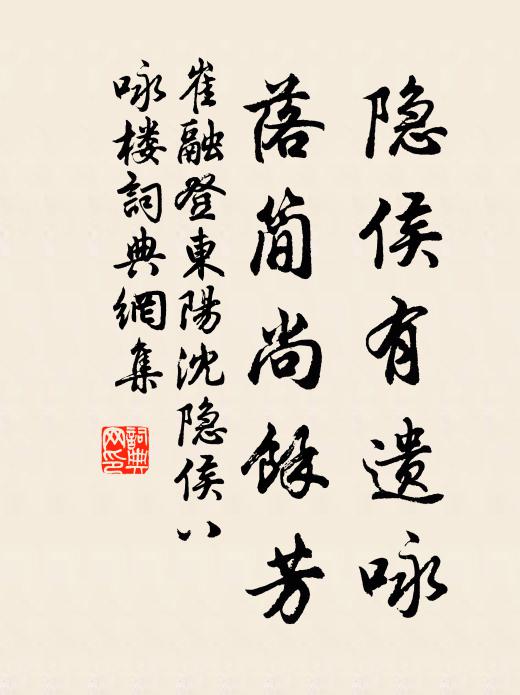 隐侯有遗咏
落简尚馀芳
崔融登東陽沈隐侯八
咏楼詞典網集
詞典网印